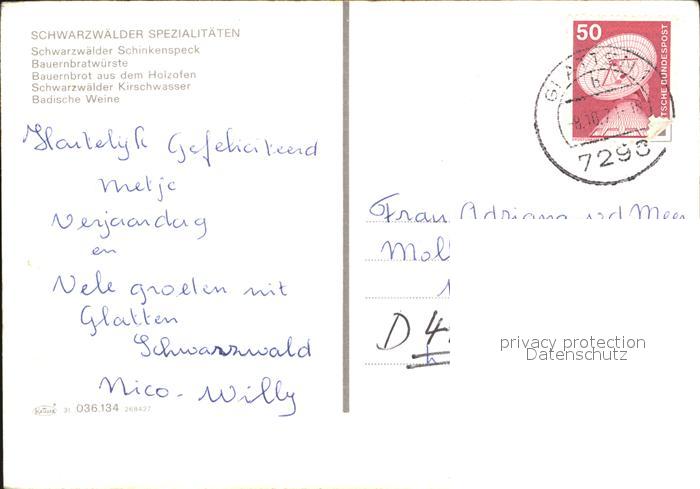 SCHWARZWÄLDER SPEZIALITÄTEN
Schwarzwälder Schinkenspeck
Bauernbratwürste
Bauernbrot aus dem Holzofen
Schwarzwälder Kirschwasser
Badische Weine
Hartelijk Gefeliciteerd
metje
Verjaardag
en
Vele groeten uit
Glatten
Schwarzwald
Nico - Willy
31 036.134 268427
50
DEUTSCHE BUNDESPOST
GLATTEN
7298
Frau Adriana v.d Meer
D 4
privacy protection
Datenschutz